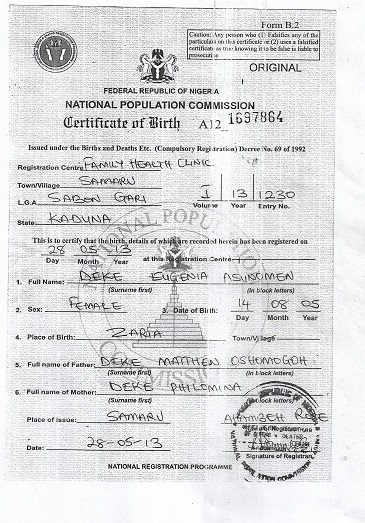 Form B.2
Caution: Any person who (1) Falsifies any of the
particulars on this certificate or (2) uses a falsified
certificate as true knowing it to be false is liable to
prosecution
ORIGINAL
FEDERAL REPUBLIC OF NIGERIA
NATIONAL POPULATION COMMISSION
Certificate of Birth A12 1697864
Issued under the Births and Deaths Etc. (Compulsory Registration) Decree No. 69 of 1992
Registration Centre FAMILY HEALTH CLINIC
Town/Village SAMARU
L.G.A SABON GARI I 13 1230
Volume Year Entry No.
State KADUNA
This is to certify that the birth, details of which are recorded herein has been registered on
28 05 13 at this Registration Centre
Day Month Year
1. Full Name: DEKE EUGENIA
(Surname first) (In block letters)
2. Sex: FEMALE 3. Date of Birth: 14 08 05
Day Month Year
4. Place of Birth: ZARIA Town/Village
5. Full name of Father: DEKE MATTHEW OSHOMOGOH
(Surname first) (In block letters)
6. Full name of Mother: DEKE PHILOMINA
(Surname first) (In block letters)
Place of Issue: SAMARU
Date: 28-05-13
Signature of Registrar
NATIONAL REGISTRATION PROGRAMME